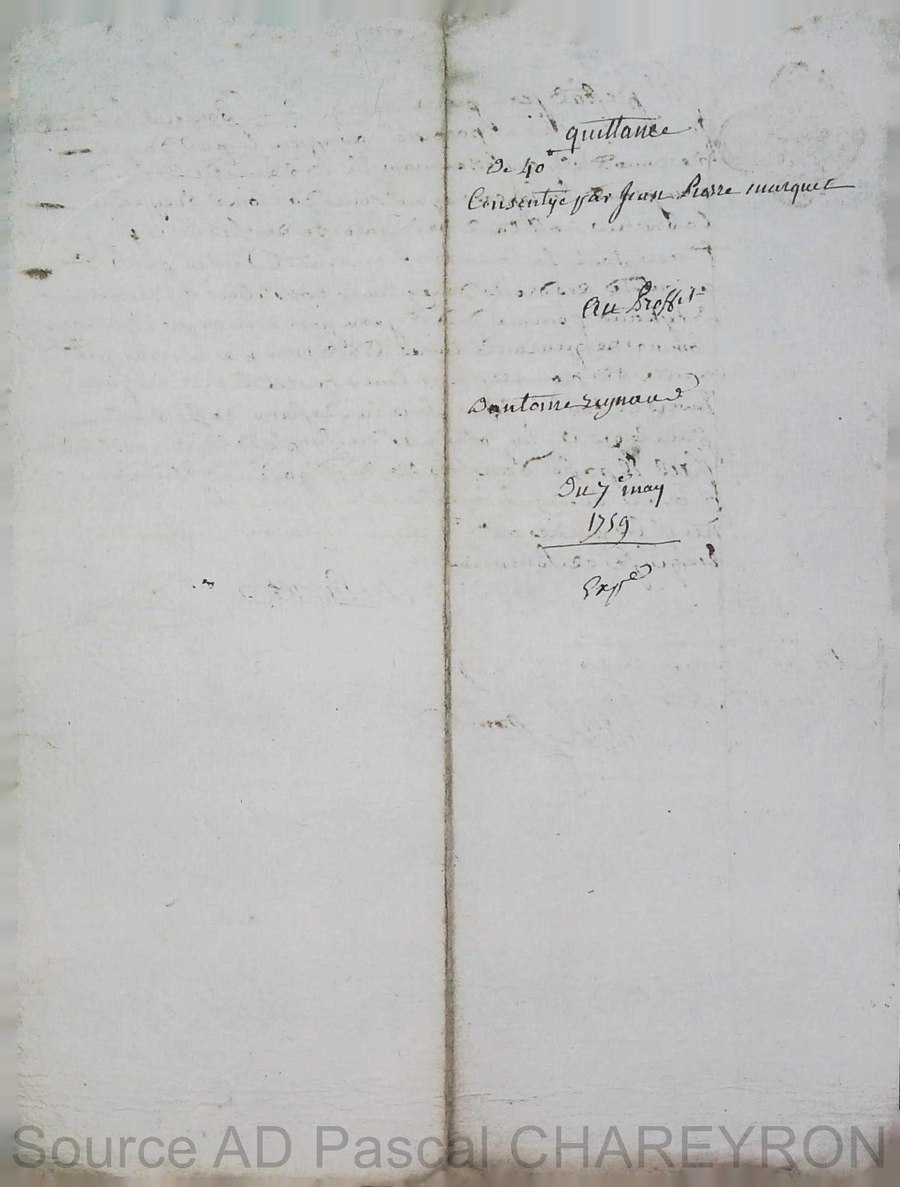 quittance
de 40#
Consentye par Jean Pierre marquet
au Proffit
Dantoine reynaud
Du 7e may
1759
Exped
Source AD Pascal CHAREYRON